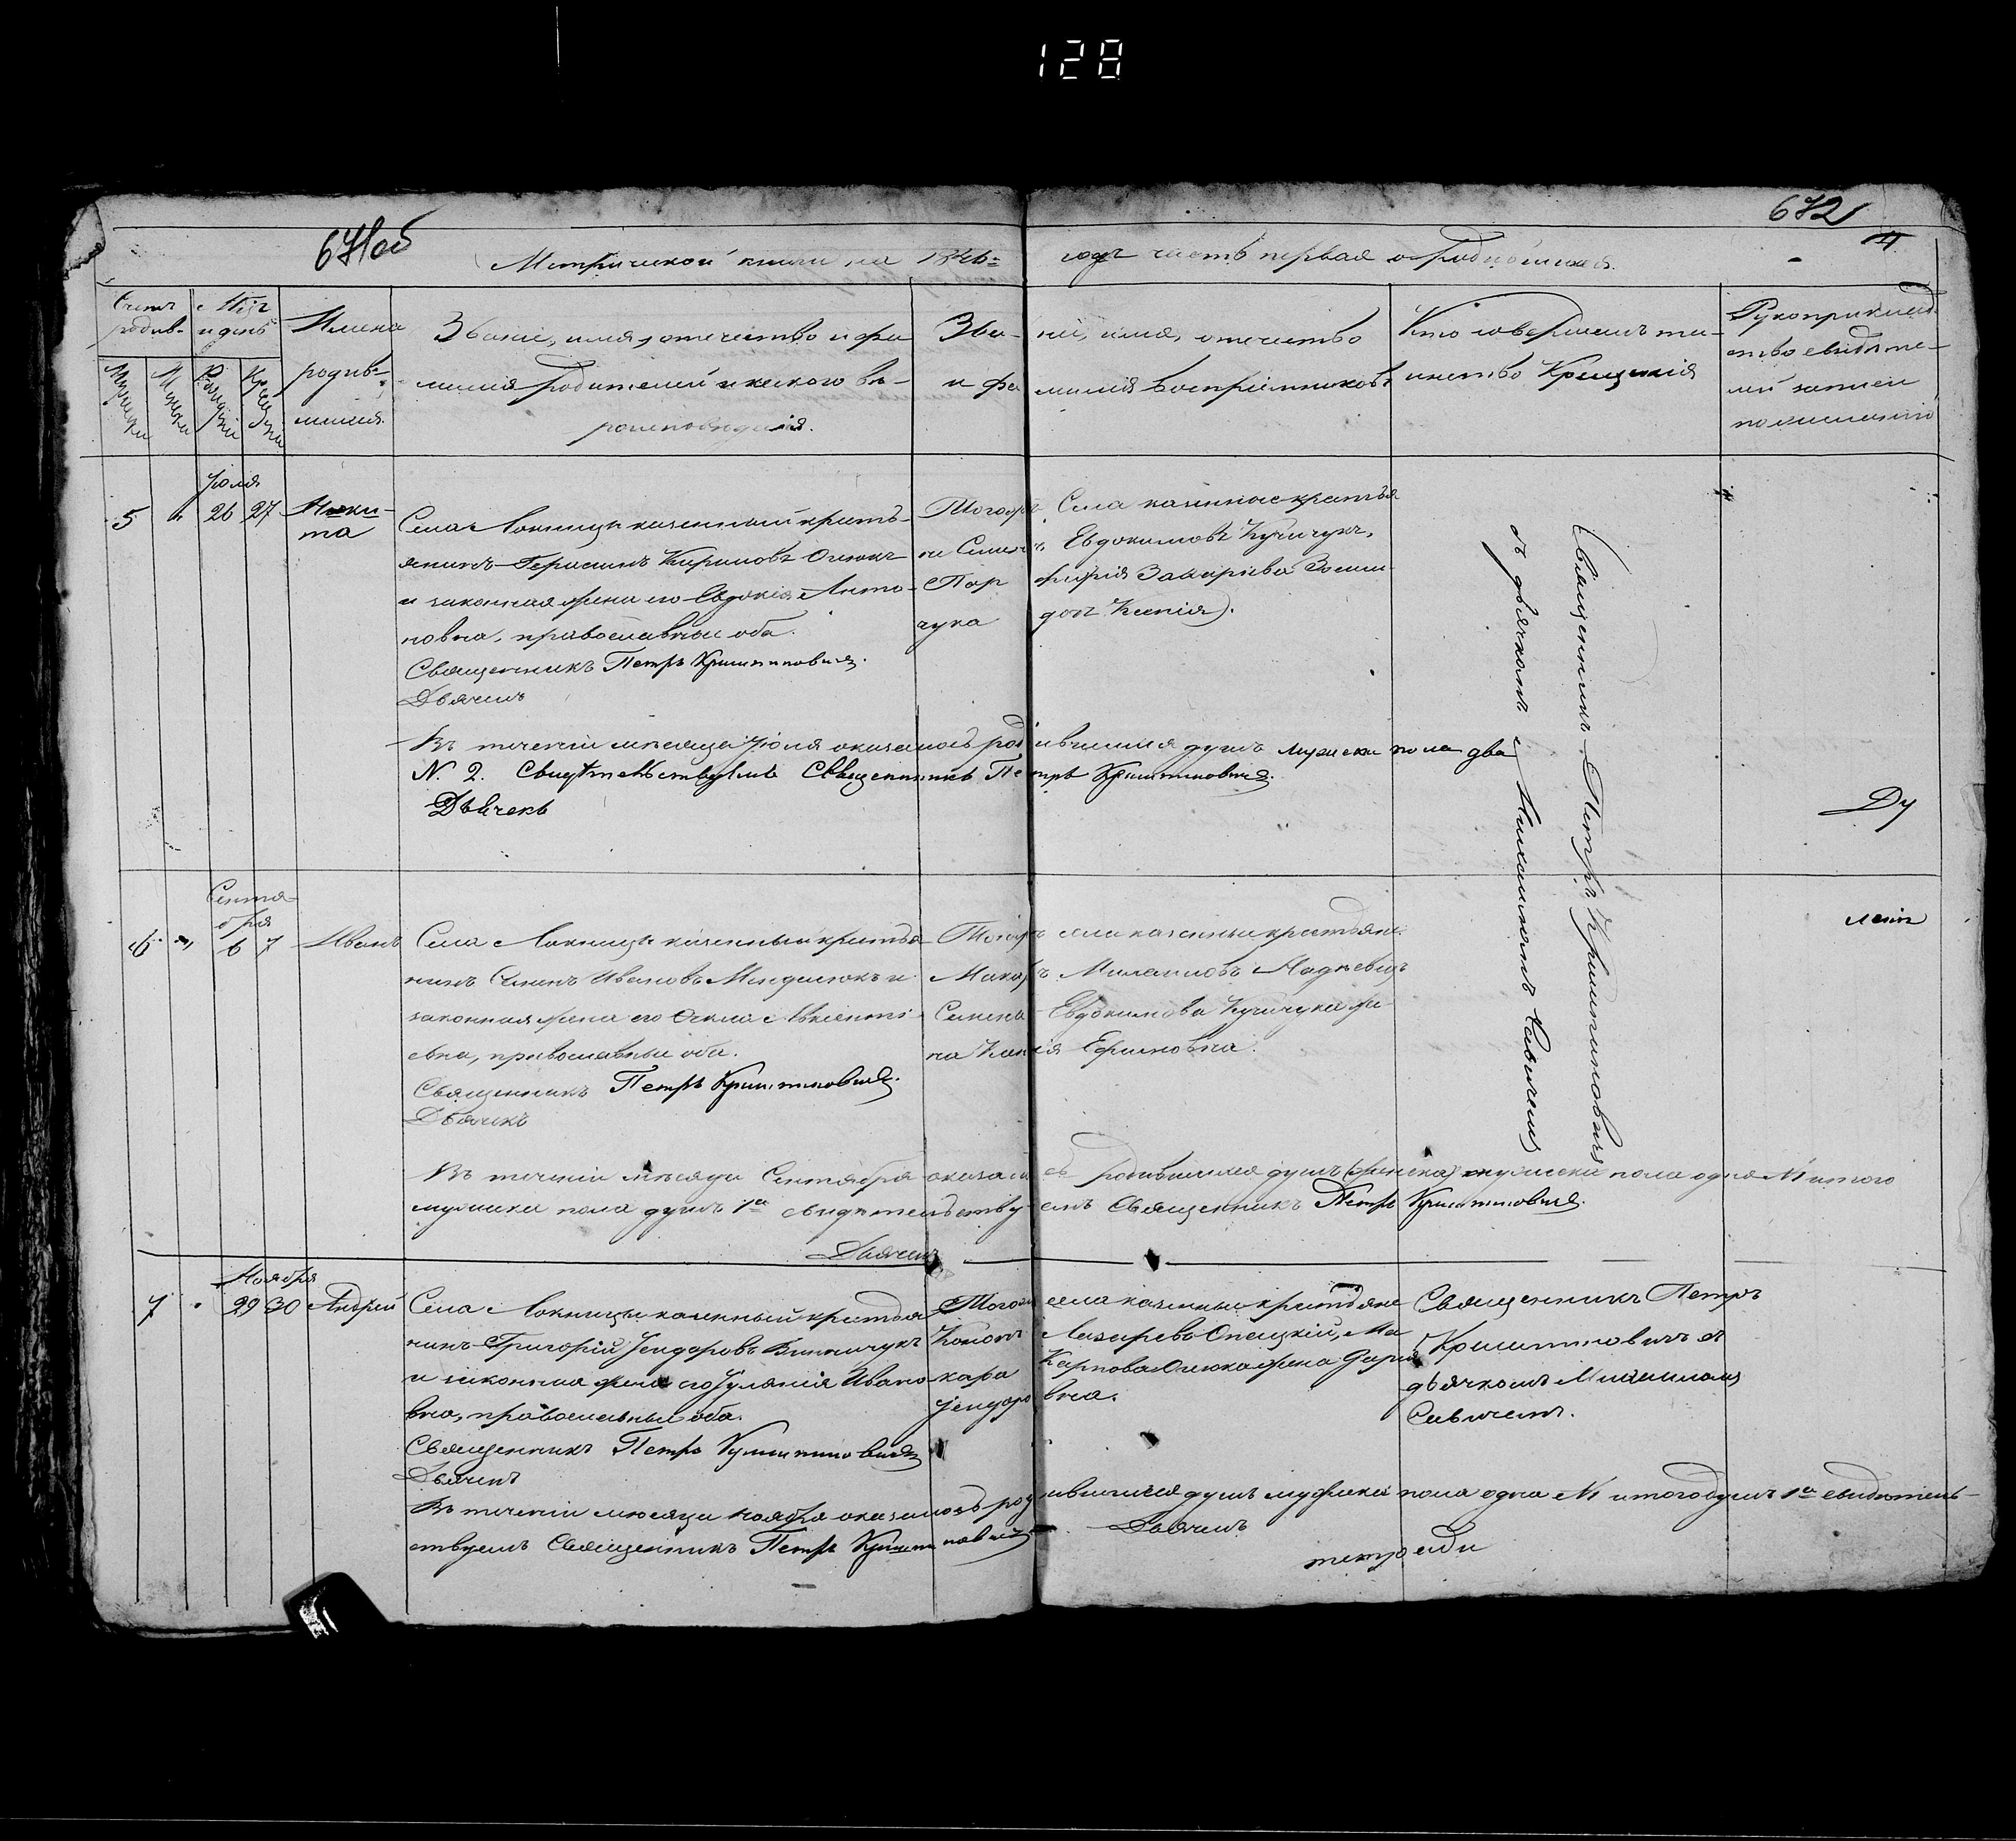 128
671об
672
4
Метрической книги на 1846= годъ часть первая о родившихся.
Счетъ родив-
Мѣс: и день
Имена родив-шихся.
Званіе, имя, отечество и фа-
милія родителей и какого вѣ-
роисповѣданія.
Званіе, имя, отечество
и фамилія воспріемниковъ
Кто совершалъ та-
инство Крещенія
Рукоприклад-
ство свидѣте-
лей записи
по желанію
Мужеска
Женска
Рожденія
Крещенія
Іюля
5 " 26 27 Ники-
та
Села Локницы казенный крестъ-
янинъ Герасимъ Кириловъ Олюкъ
и законная жена его Евдокія Анто-
новна, православныи оба.
Священникъ Петръ Криштиповичъ.
Дьячекъ
Тогожъ Села казенные крестья
не Симеонъ Евдокимовъ Кучичукъ,
Порфирія Захарiева
дочь Ксенія).
Священникъ Петръ Криштиповичъ
съ дьячкомъ Михаиломъ Савичемъ
Въ теченіи мѣсяца Іюля оказалось родившихся душъ мужеска пола два
N. 2. Свидѣтельствуемъ Священникъ Петръ Криштиповичъ.
Дьячекъ
Ду
Сентя-
бря
6 " 6 7 Иванъ
Села Локницы казенный крестья-
нинъ Семенъ Ивановъ Мендилюкъ и
законная жена его Фекла Авксенті-
евна, православныи оба.
Священникъ Петръ Криштиповичъ.
Дьячекъ
Тогожъ села казенные крестьяне
Макаръ Михаиловъ
Семена Евдокимова Кучичука же
на Ксенія Ефимовна.
Въ теченіи мѣсяца Сентября оказалось родившихся душъ (женска) мужеска пола одна N1 итого
мужеска пола душъ 1а свидѣтельствуемъ Священникъ Петръ Криштиповичъ.
Дьячекъ
Ноября
7 " 29 30 Андрей
Села Локницы казенный крестья
нинъ Григорій Ѳеодоровъ Винничукъ
и законная жена его Іуліанія Ивано-
вна, православныи оба.
Священникъ Петръ Криштиповичъ
Дьячекъ
Тогожъ села казенные крестьяне
Кононъ Лазаревъ Опецкій, Ма
кара Карпова Олюка жена Дарія
Ѳеодоровна.
Священникъ Петръ
Криштиповичъ съ
дьячкомъ Михаиломъ
Савичемъ.
Въ теченіи мѣсяца Ноября оказалось родившихся душъ мужеска пола одна N1 итого душъ 1а свидѣтель-
ствуемъ Священникъ Петръ Криштиповичъ. Дьячекъ
тетради